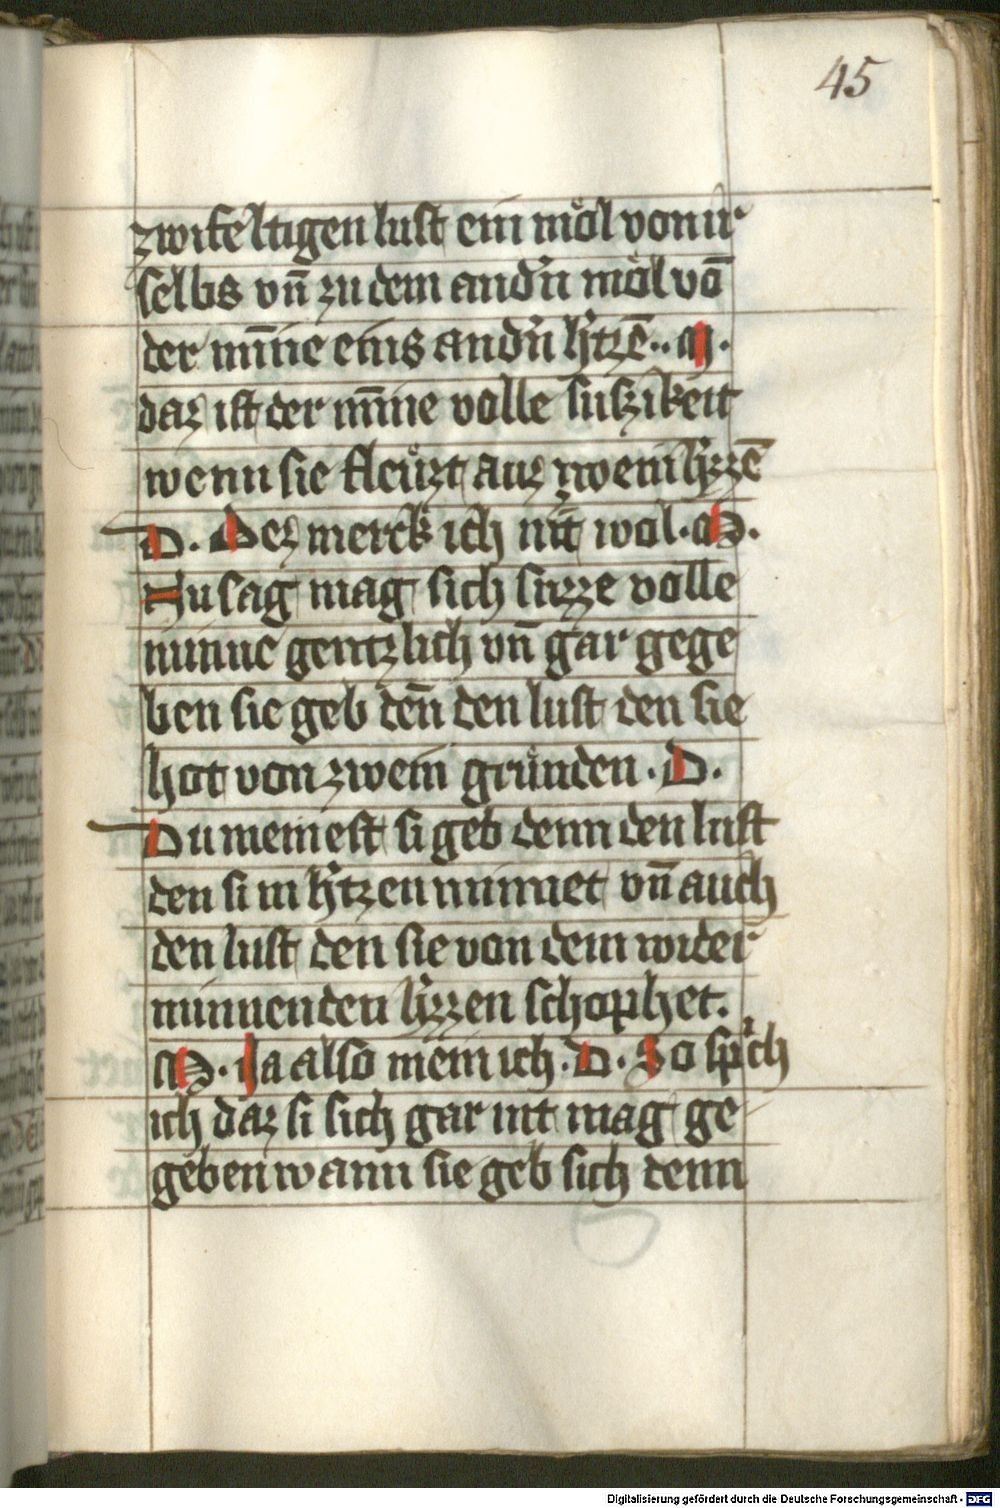 45
zwifeltigen lust ein möl von ir
selbs vn̄ zu dem and'n möl vō
der mīne eins and'n h'tzē .. M .
daz ist der mīne volle suszikeit
wenn sie fleüzt auz zwein h'zzē
D . Dez merck ich nit wol . M .
Nu sag mag sich suzze volle
minne gentzlich vn̄ gar gege
ben sie geb den̄ den lust den sie
hot von zwein gründen . D .
Du meinest si geb denn den lust
den si in h'tzen minnet vn̄ auch
den lust den sie von dem wider
minnenden h'zzen schophet .
M . Ja also mein ich . D . So sp'ch
ich daz si sich gar nit mag ge
geben wann sie geb sich denn
Digitalisierung gefördert durch die Deutsche Forschungsgemeinschaft - DFG